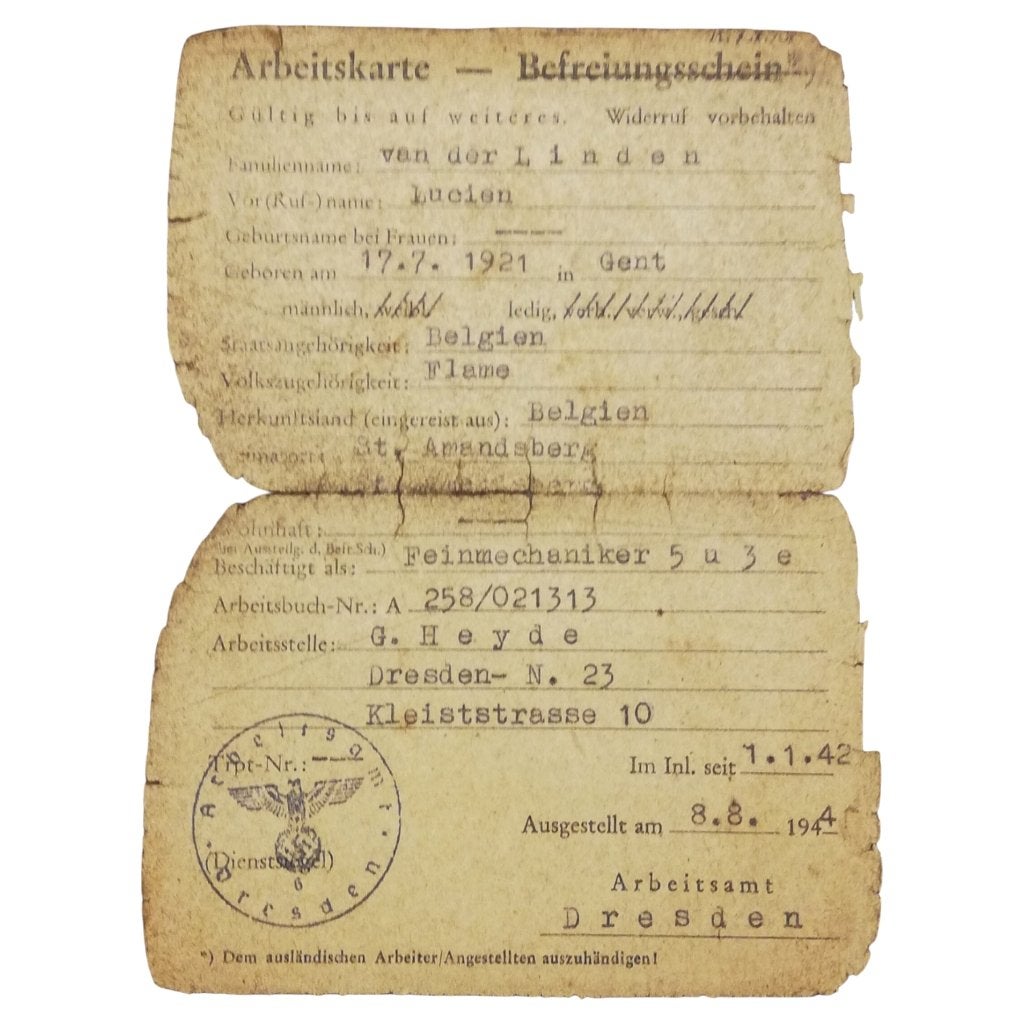 Arbeitskarte — Befreiungsschein*)
Gültig bis auf weiteres. Widerruf vorbehalten
Familienname: van der Linden
Vor(Ruf-)name: Lucien
Geburtsname bei Frauen: ----
Geboren am 17.7. 1921 in Gent
männlich, weibl. ledig, verh., verw., gesch.
Staatsangehörigkeit: Belgien
Volkszugehörigkeit: Flame
Herkunftsland (eingereist aus): Belgien
Heimatort: St. Amandsberg
Wohnhaft: ----
(bei Ausstellg. d. Befr.Sch.)
Beschäftigt als: Feinmechaniker 5 u 3 e
Arbeitsbuch-Nr.: A 258/021313
Arbeitsstelle: G. Heyde
Dresden- N. 23
Kleiststrasse 10
Tipt-Nr.: ---
Im Inl. seit 1.1.42
Ausgestellt am 8.8. 1944
(Dienstsiegel)
Arbeitsamt Dresden
6
Arbeitsamt
Dresden
*) Dem ausländischen Arbeiter/Angestellten auszuhändigen!